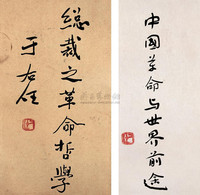 总裁之革命哲学
于右任
中國革命与世界前途